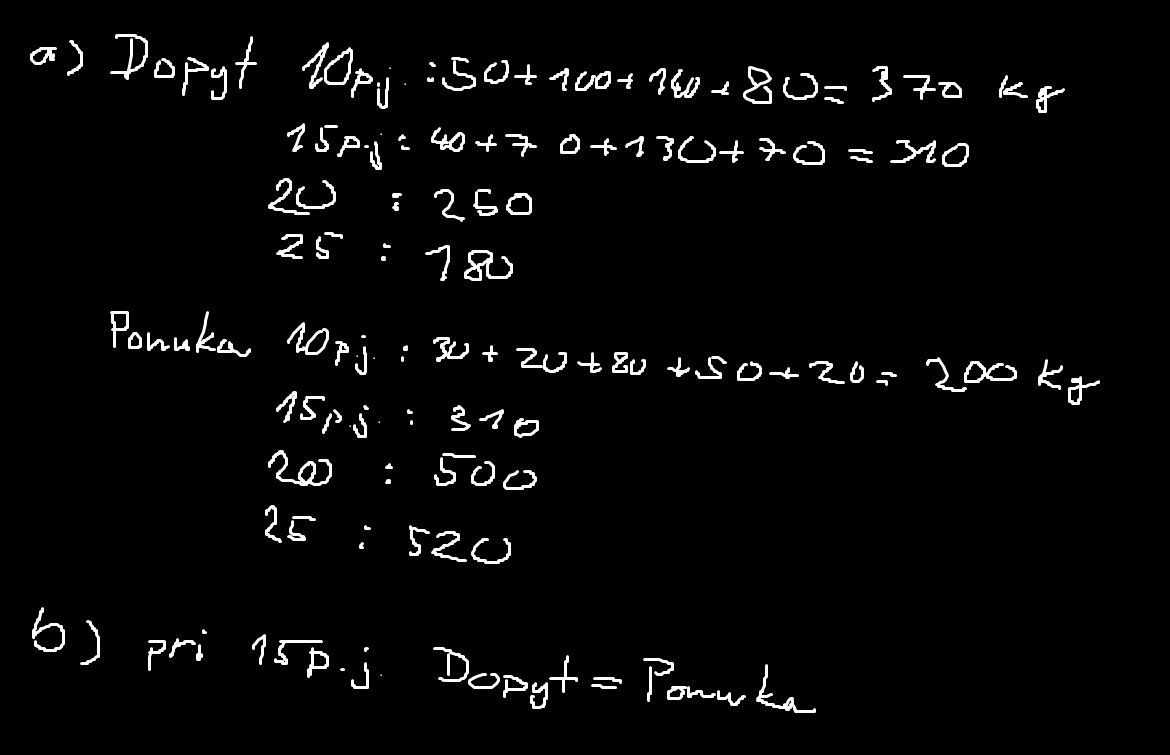 a) Dopyt 10p.j. : 50+100+140+80= 370 kg
15p.j. : 40+70+130+70 = 310
20 : 250
25 : 180
Ponuka 10p.j. : 30+20+80+50+20= 200 kg
15p.j. : 310
20 : 500
25 : 520
b) pri 15p.j. Dopyt = Ponuka